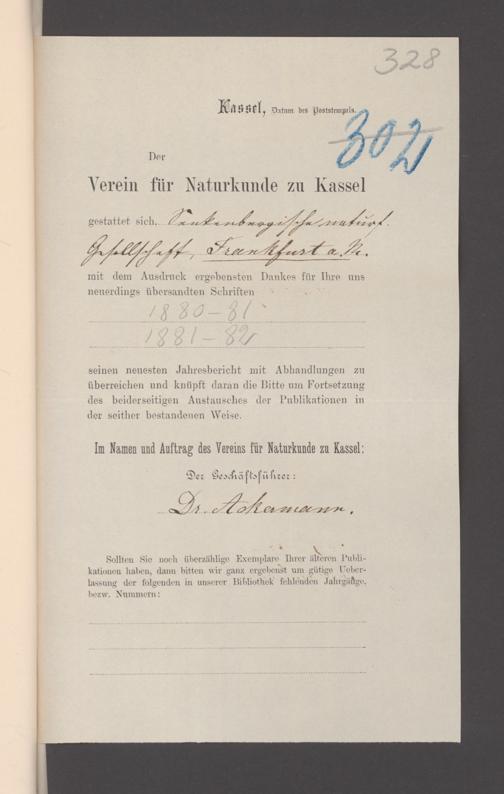 328
Kassel, Datum des Poststempels.
302
Der
Verein für Naturkunde zu Kassel
gestattet sich, Senkenbergische naturf.
Gesellschaft, Frankfurt a. M.
mit dem Ausdruck ergebensten Dankes für Ihre uns
neuerdings übersandten Schriften
1880-81
1881-82
seinen neuesten Jahresbericht mit Abhandlungen zu
überreichen und knüpft daran die Bitte um Fortsetzung
des beiderseitigen Austausches der Publikationen in
der seither bestandenen Weise.
Im Namen und Auftrag des Vereins für Naturkunde zu Kassel:
Der Geschäftsführer:
Dr. Ackermann.
Sollten Sie noch überzählige Exemplare Ihrer älteren Publi-
kationen haben, dann bitten wir ganz ergebenst um gütige Ueber-
lassung der folgenden in unserer Bibliothek fehlenden Jahrgänge,
bezw. Nummern: